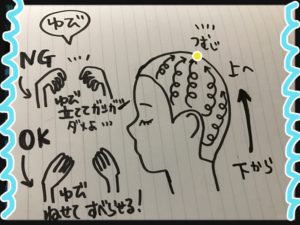 ゆび
NG
ゆび
立ててガシガシ
ダメよ…
OK
ゆび
ねせて すべらせる!
つむじ
上へ
下から